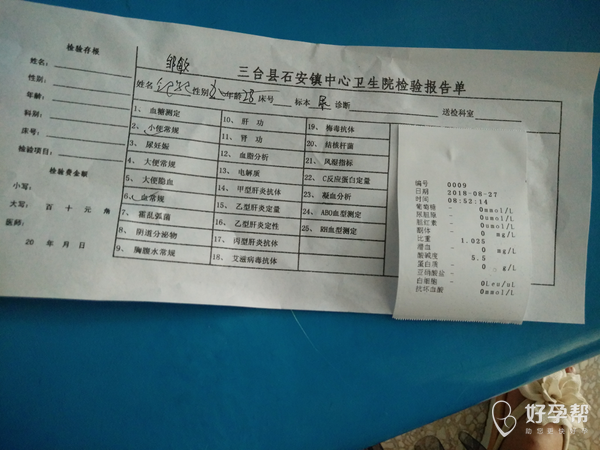 检验存根
姓名：
性别：
年龄：
科别：
床号：
检验项目：
检验费金额
小写：
大写： 百 十 元 角
医师：
20 年 月 日
邹敏
三台县石安镇中心卫生院检验报告单
姓名 性别 女 年龄 28 床号 标本 尿 诊断 送检科室
1、 血糖测定
2、 小便常规
3、 尿妊娠
4、 大便常规
5、 大便隐血
6、 血常规
7、 霍乱弧菌
8、 阴道分泌物
9、 胸腹水常规
10、 肝 功
11、 肾 功
12、 血脂分析
13、 电解质
14、 甲型肝炎抗体
15、 乙型肝炎定量
16、 乙型肝炎定性
17、 丙型肝炎抗体
18、 艾滋病毒抗体
19、 梅毒抗体
20、 结核杆菌
21、 风湿指标
22、 C反应蛋白定量
23、 凝血分析
24、 ABO血型测定
25、 RH血型测定
编号 0009
日期 2018-08-27
时间 08:52:14
葡萄糖 - 0mmol/L
尿胆原 - 0umol/L
胆红素 - 0umol/L
酮体 - 0 mg/L
比重 1.025
潜血 - 0 mg/L
酸碱度 5.5
蛋白质 - 0 g/L
亚硝酸盐 -
白细胞 - 0Leu/uL
抗坏血酸 0mmol/L
好孕帮
助您更快好孕